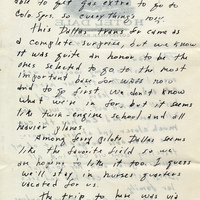 able to get gas extra to go to
Colo. Sprs. so everything's
This Dallas transfer came as
a complete surprise, but we know
it was quite an honor to be the
ones selected to go to the most
important base for WASPs now
and to go first. We don't know
what we're in for, but it seems
like twin-engine school and all
heavier planes.
Among ferry pilots Dallas seems
like the favorite field so we
are hoping to like it too. I guess
we'll stay in nurses quarters
vacated for us.
The trip to here was via